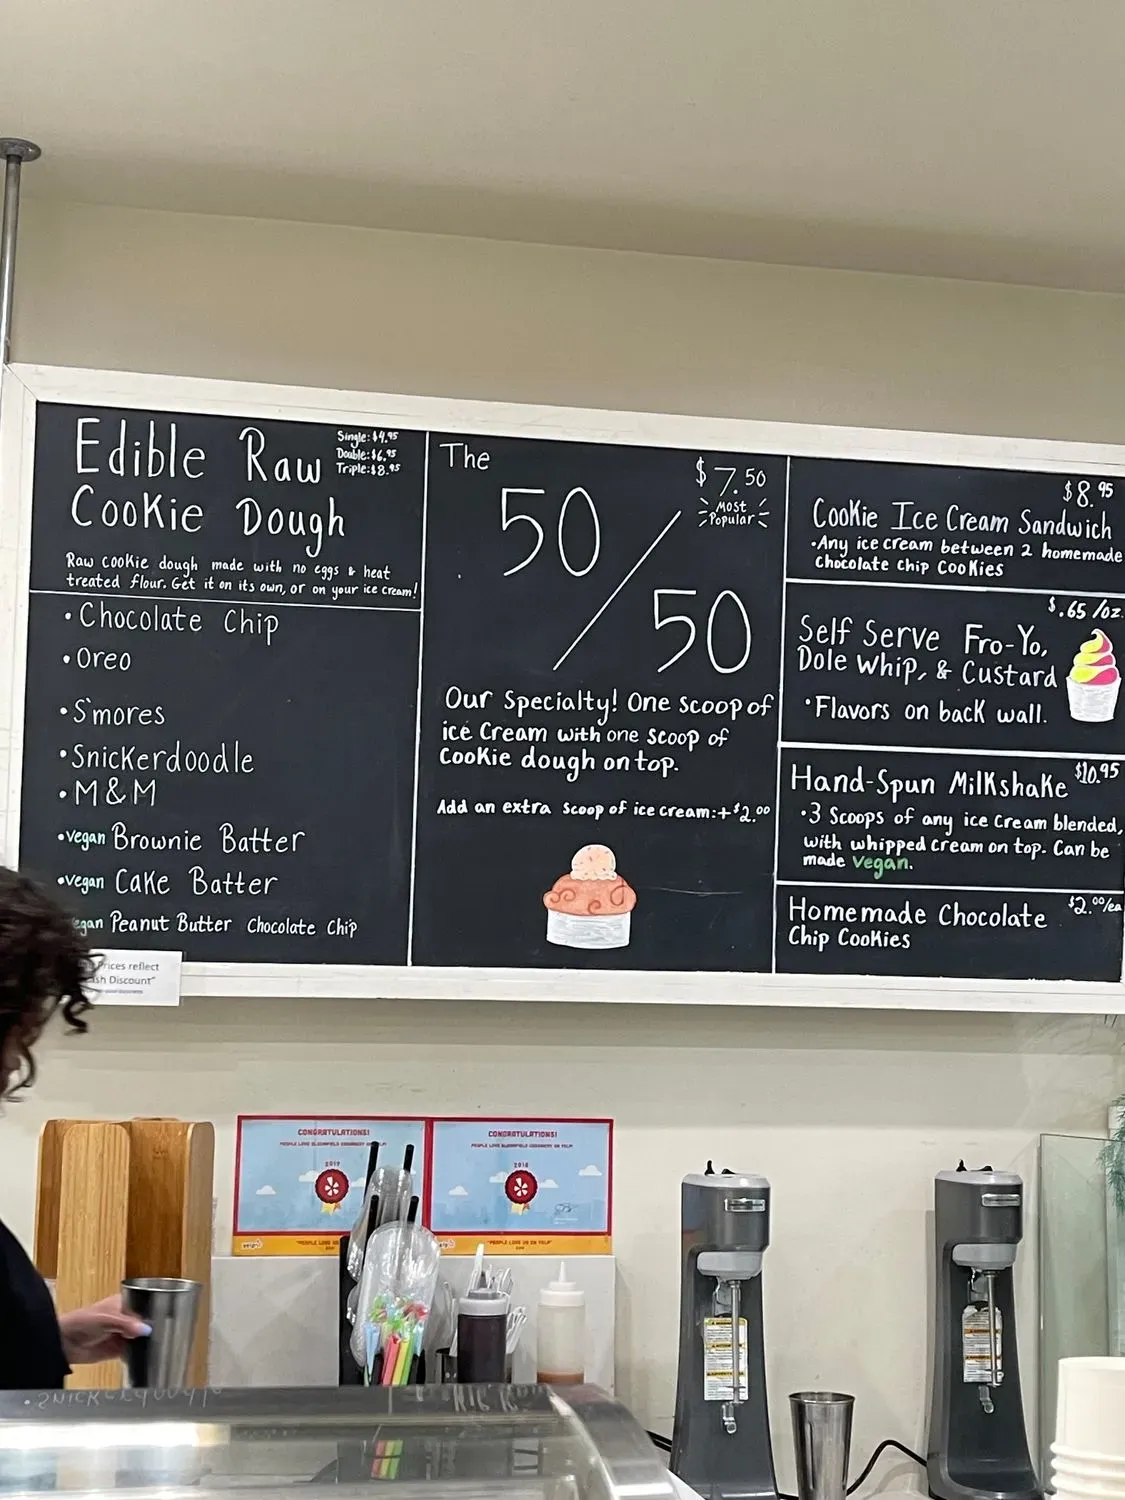 Edible Raw
Cookie Dough
Single: $4.95
Double: $6.95
Triple: $8.95
Raw cookie dough made with no eggs & heat
treated flour. Get it on its own, or on your ice cream!
• Chocolate Chip
• Oreo
• S'mores
• Snickerdoodle
• M&M
• vegan Brownie Batter
• vegan Cake Batter
Peanut Butter Chocolate Chip
The
50/50
$7.50
Most
Popular
Our Specialty! One scoop of
ice cream with one scoop of
cookie dough on top.
Add an extra scoop of ice cream: +$2.00
$8.95
Cookie Ice Cream Sandwich
• Any ice cream between 2 homemade
chocolate chip cookies
$.65/oz.
Self Serve Fro-Yo,
Dole Whip, & Custard
• Flavors on back wall.
Hand-Spun Milkshake $10.95
• 3 Scoops of any ice cream blended,
with whipped cream on top. Can be
made vegan.
Homemade Chocolate $2.00/ea
Chip Cookies
Prices reflect
Discount"
CONGRATULATIONS!
2017
CONGRATULATIONS!
PEOPLE LOVE BLOOMFIELD CREAMERY ON YELP
2018
"PEOPLE LOVE US ON YELP"
• Snickerdoodle